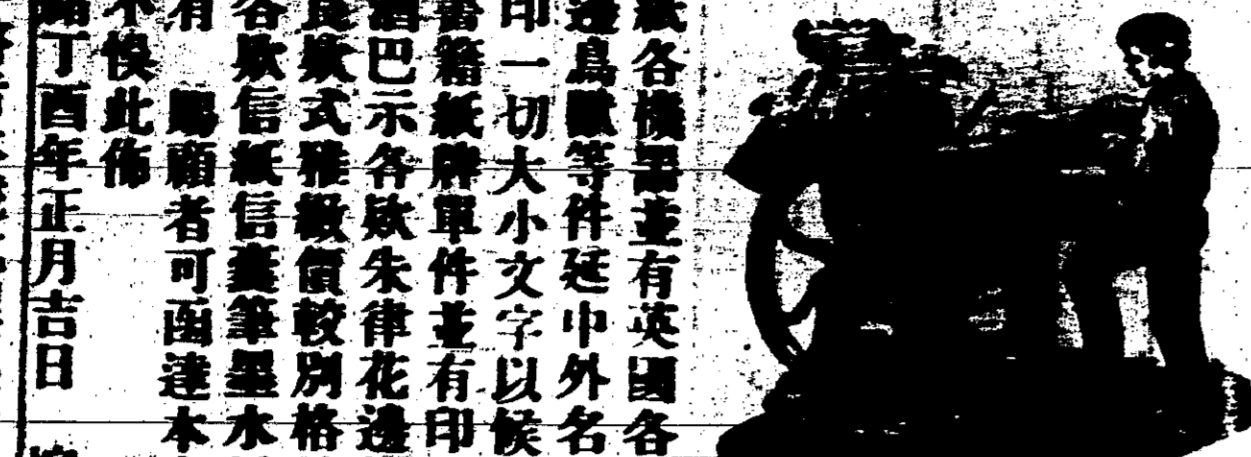 紙各樣墨並有英國各
邊鳥獸等件延中外名
印一切大小文字以候
書籍紙牌單件並有印
酒巴示各欵朱律花邊
良欵式雅緻價較別格
各欵信紙信囊筆墨水
有 賜顧者可函達本
不悞此佈
丁酉年正月吉日